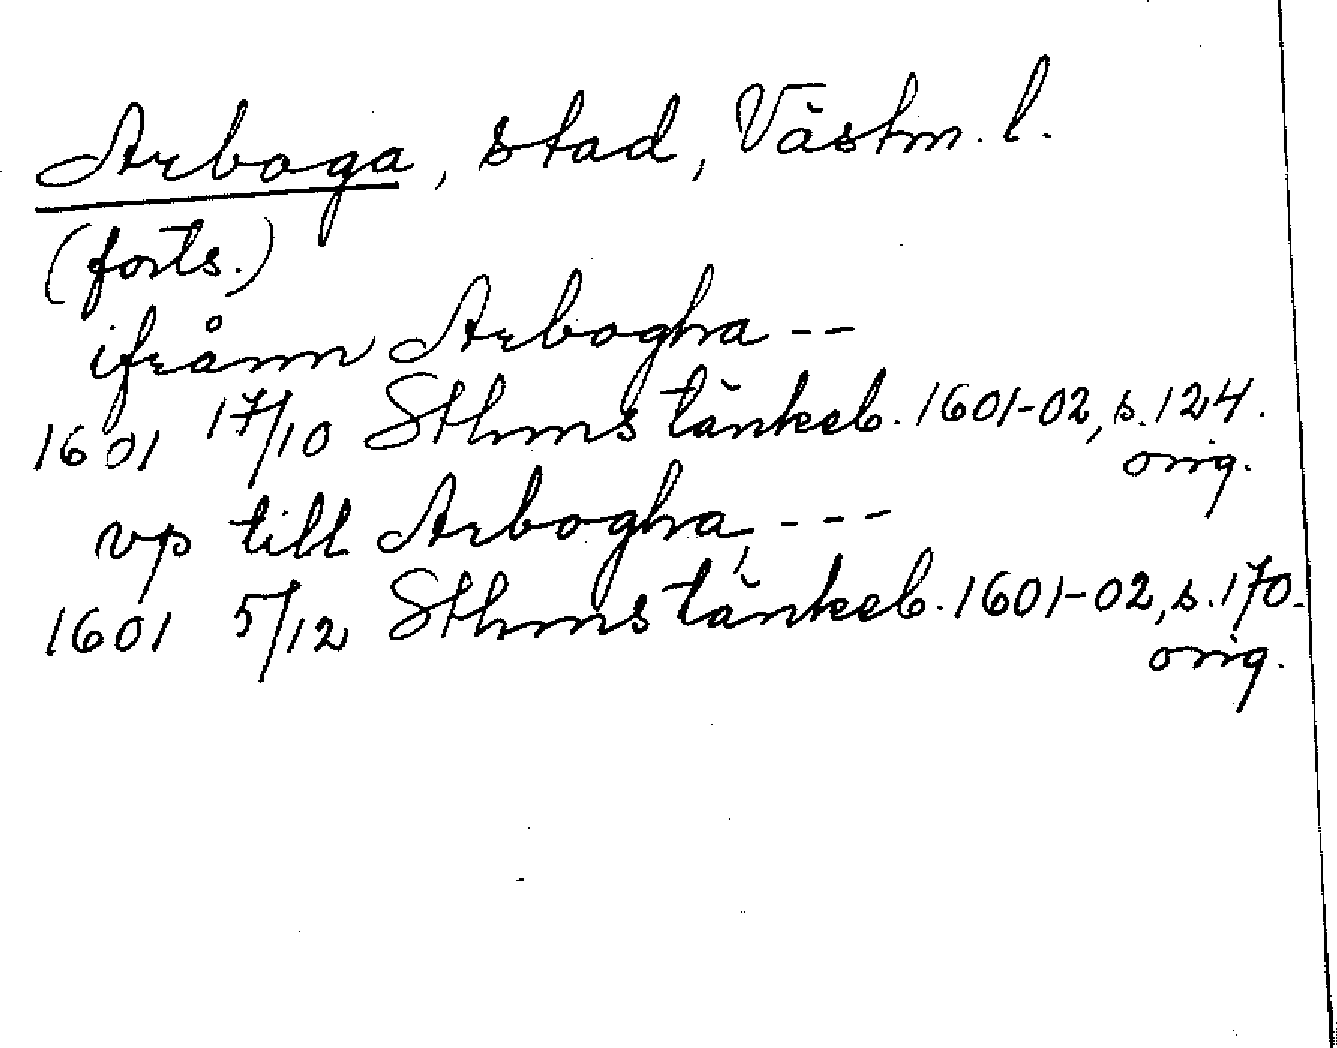 Arboga, stad, Västm. l.
(forts.)
ifrånn Arbogha --
1601 17/10 Sthms tänkeb. 1601-02, s. 124.
orig.
vp till Arbogha, ---
1601 5/12 Sthms tänkeb. 1601-02, s. 170.
orig.